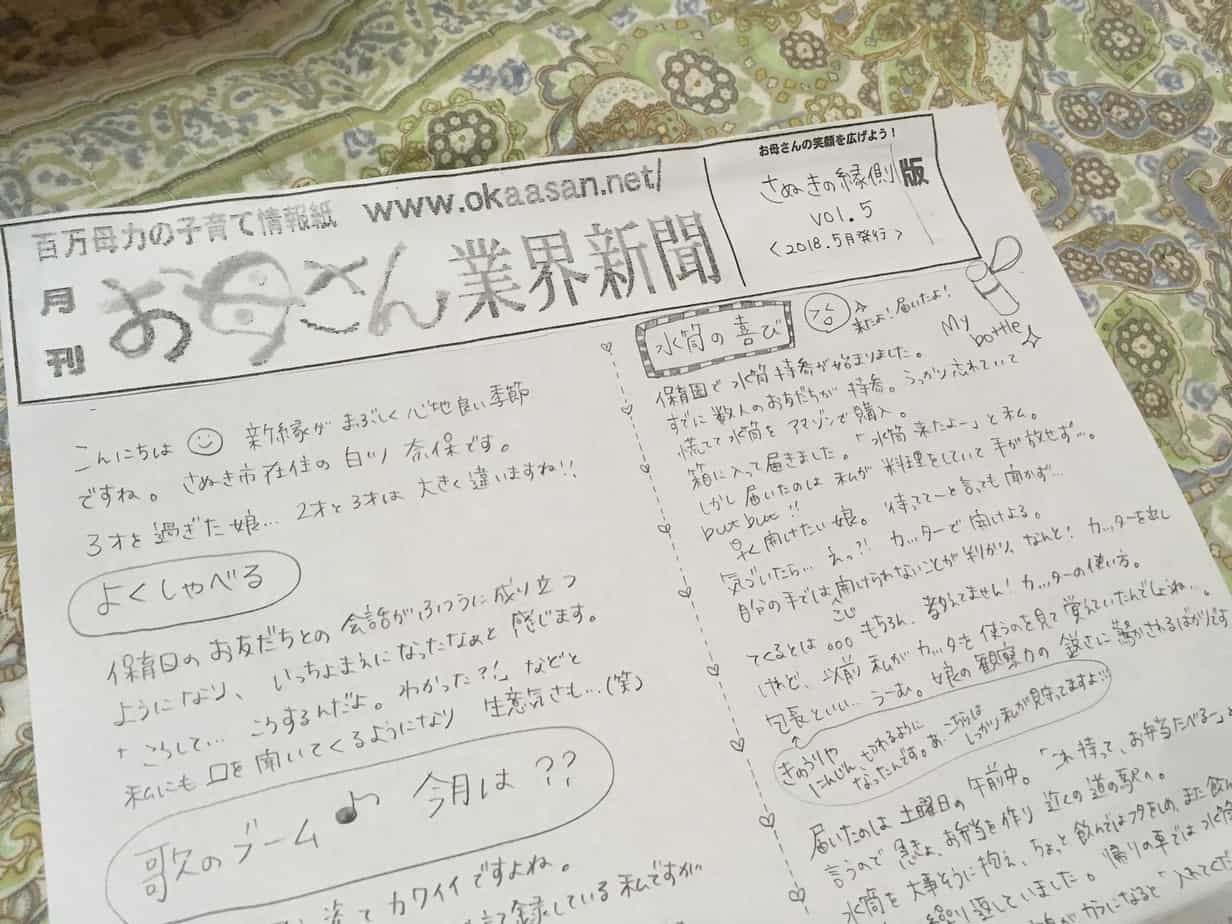 百万母力の子育て情報紙 www.okaasan.net/
月刊 お母さん業界新聞
お母さんの笑顔を広げよう!
さぬきの縁側版
vol.5
<2018.5月発行>
こんにちは 新緑がまぶしく心地良い季節
ですね。さぬき市在住の 奈保です。
3才を過ぎた娘… 2才と3才は大きく違いますね!!
よくしゃべる
保育園のお友だちとの会話がふつうに成り立つ
ようになり、いっちょまえになったなぁと感じます。
「こうして… こうするんだよ。わかった?!」などと
私にも口を聞いてくるようになり 生意気さも…(笑)
歌のブーム♪ 今月は??
カワイイですよね。
録している私ですが
水筒の喜び
来たよ!届いたよ!
My
bottle
保育園で水筒持参が始まりました。
すでに数人のお友だちが持参。うっかり忘れていて
慌てて水筒をアマゾンで購入。
箱に入って届きました。「水筒来たよー」と私。
しかし届いたのは私が料理をしていて手が放せず…。
but but!!
早く開けたい娘。待っててーと言っても聞かず…
気づいたら… えっ?! カッターで開けよる。
自分の手では開けられないことが判かり、なんと!カッターを出し
てくるとは。。。もちろん、教えてません!カッターの使い方。
けれど、以前私がカッターを使うのを見て覚えていたんでしょうね…。
包丁といい… うーむ。娘の観察力の鋭さに驚かされるばかりです
きゅうりや
にんじん、切れるように
なったんです。あ、こちらは
しっかり私が見守ってますよ
届いたのは土曜日の午前中。「これ持って、お弁当たべる」と
言うので急きょ、お弁当を作り近くの道の駅へ。
水筒を大事そうに抱え、ちょっと飲んではフタをしめ、また飲ん
繰り返していました。帰りの車では水筒
からになると「入れてくだ